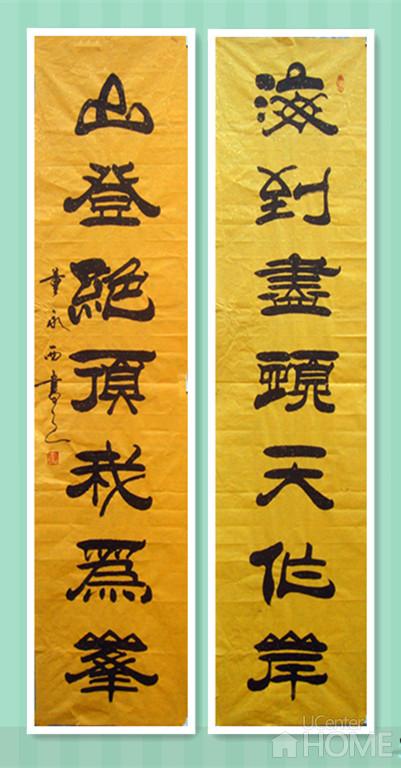 海到盡頭天作岸
山登絕頂我爲峯
永西書
UCenter
HOME